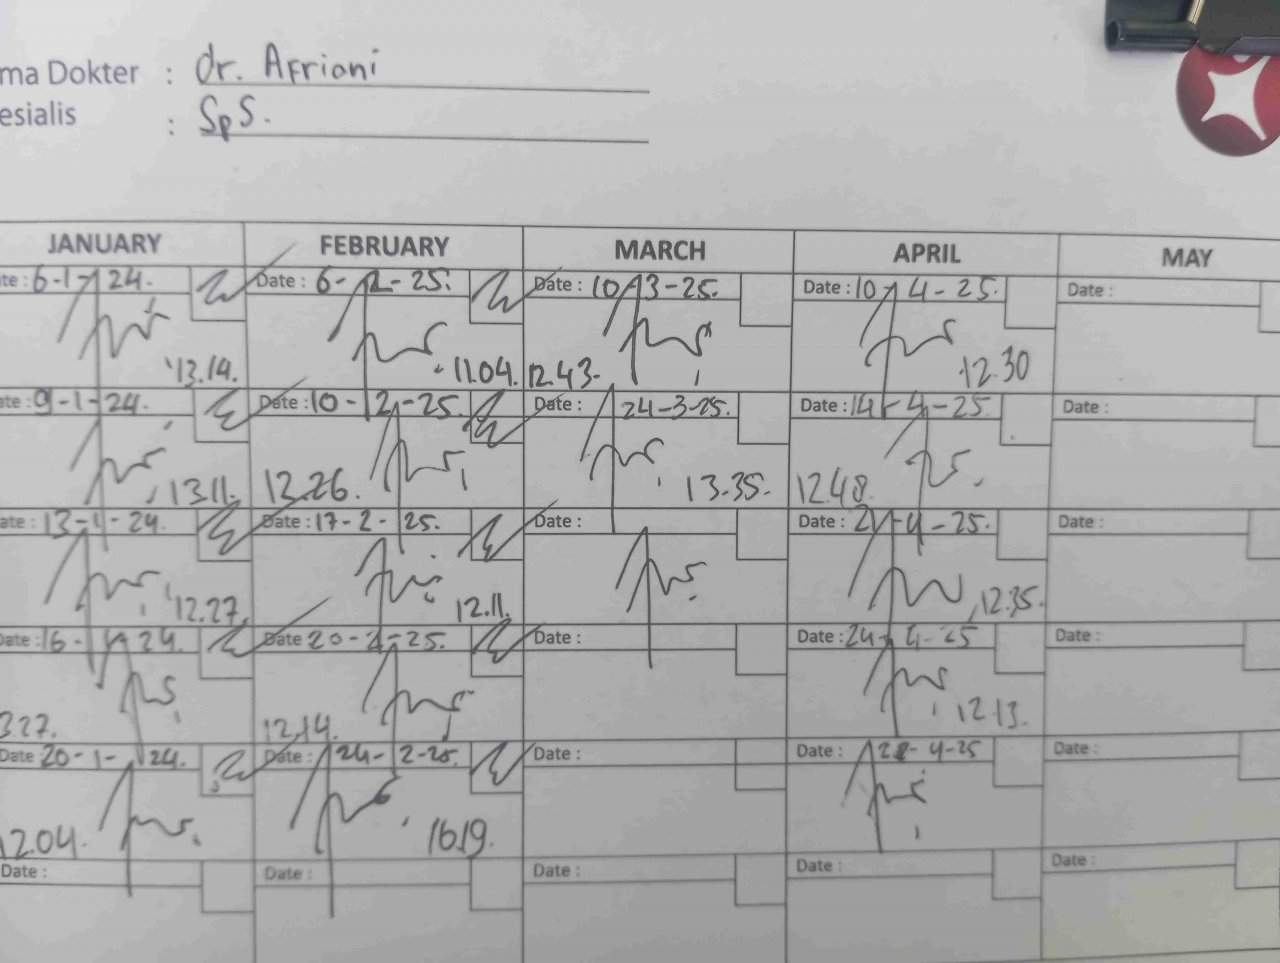 ma Dokter : dr. Afriani
esialis : SpS.
JANUARY FEBRUARY MARCH APRIL MAY
te : 6-1-24. Date : 6-2-25. Date : 10-3-25. Date : 10-4-25. Date :
13.14. 11.04. 12.43. 12.30
ate : 9-1-24. Date : 10-2-25. Date : 24-3-25. Date : 14-4-25. Date :
13.11. 12.26. 13.35. 12.48.
ate : 13-1-24. Date : 17-2-25. Date : Date : 21-4-25. Date :
12.27. 12.11. 12.35.
Date : 16-1-24. Date 20-2-25. Date : Date : 24-4-25 Date :
3.27. 12.14. 12.13.
Date 20-1-24. Date : 24-2-25. Date : Date : 28-4-25 Date :
12.04. 16.19.
Date : Date : Date : Date : Date :